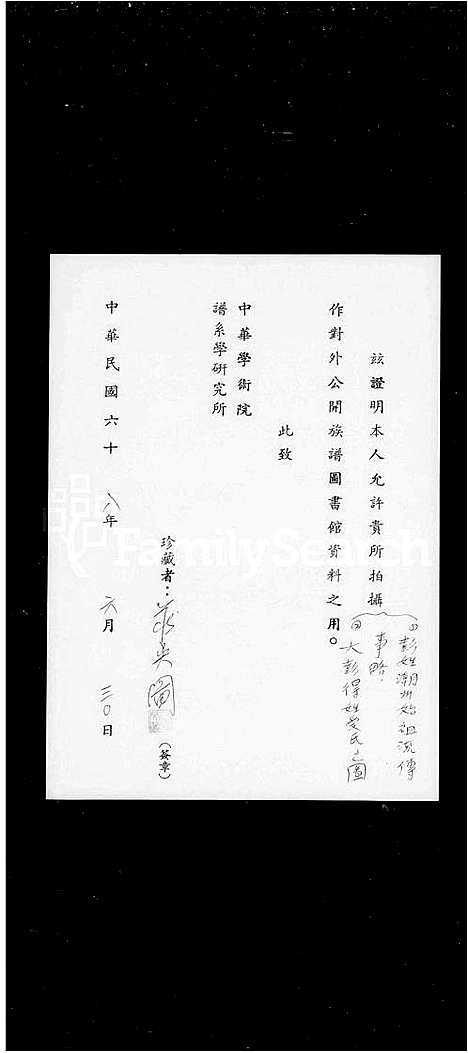 茲證明本人允許貴所拍攝
(1)彭姓潮州始祖流傳
事略.
(2)大彭得姓受氏之圖
作對外公開族譜圖書館資料之用。
此致
中華學術院
譜系學研究所
珍藏者：
(簽章)
中華民國六十八年 六月 三〇日
FamilySearch